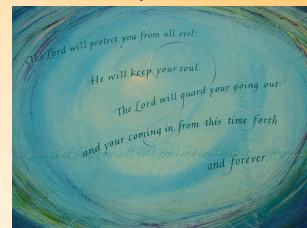 The Lord will protect you from all evil;
He will keep your soul.
The Lord will guard your going out
and your coming in from this time forth
and forever.